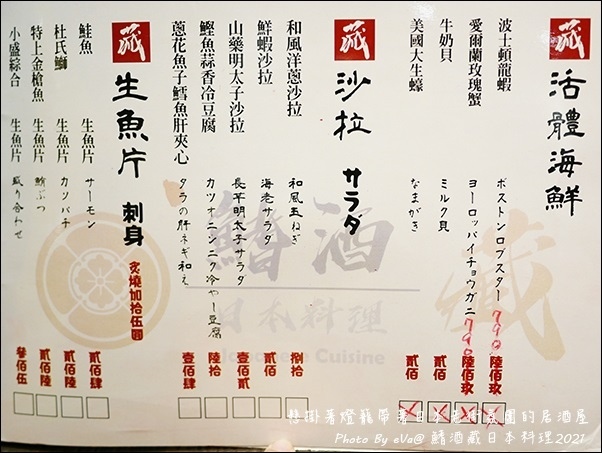 藏 活體海鮮
波士頓龍蝦 ボストンロブスター 790 陸佰玖
愛爾蘭玫瑰蟹 ヨーロッパイチョウガニ 790 陸佰玖
牛奶貝 ミルク貝 貳佰
美國大生蠔 なまがき 貳佰
藏 沙拉 サラダ
和風洋蔥沙拉 和風玉ねぎ 捌拾
鮮蝦沙拉 海老サラダ 貳佰
山藥明太子沙拉 長芋明太子サラダ 壹佰貳
鰹魚蒜香冷豆腐 カツオニンニク冷やー豆腐 陸拾
蔥花魚子鱈魚肝夾心 タラの肝ネギ和え 壹佰
藏 生魚片 刺身 炙燒加拾伍圓
鮭魚 生魚片 サーモン 貳佰肆
杜氏鰤 生魚片 カンパチ 貳佰陸
特上金槍魚 生魚片 鮪ぶつ 貳佰陸
小盛綜合 生魚片 盛り合わせ 參佰伍
鰭酒藏
日本料理
Japanese Cuisine
懸掛著燈籠帶著日本老街氛圍的居酒屋
Photo By eVa@ 鰭酒藏日本料理2021